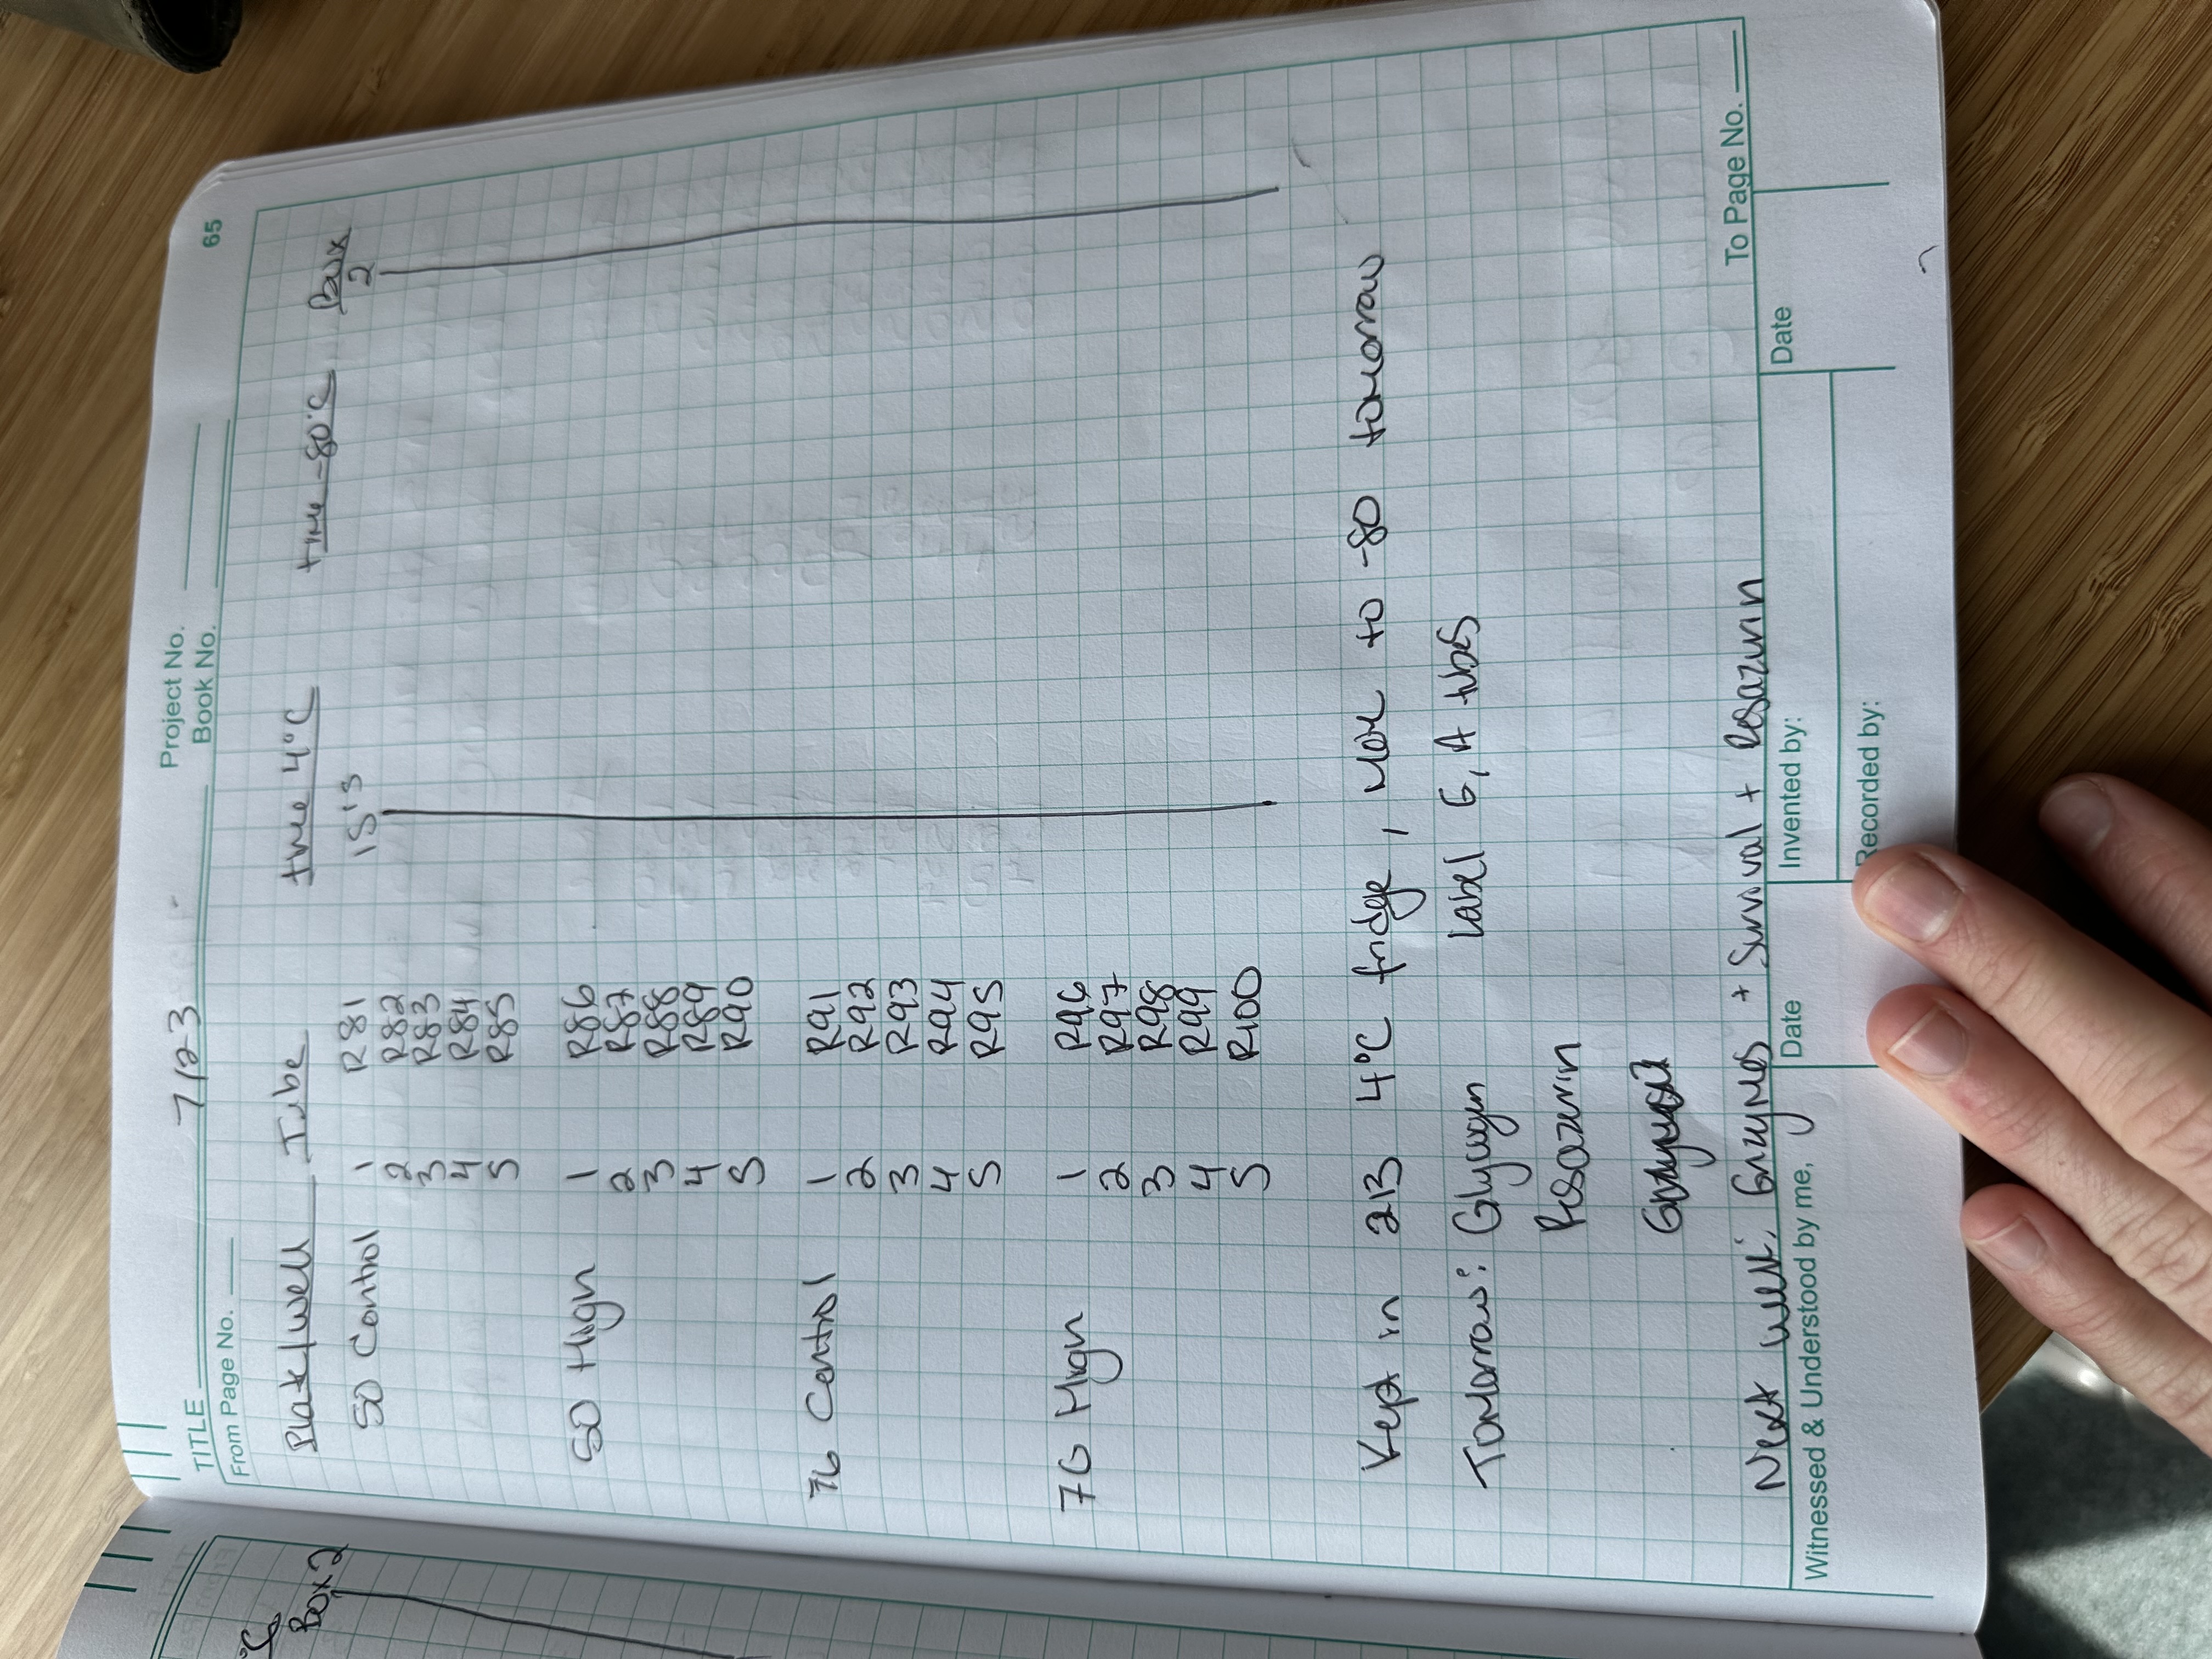 °C
Box 2
TITLE 7/23
Project No.
Book No.
65
From Page No.
Plate/Well Tube time 4°C time -80°C Box
50 Control 1 R81 15:15 2
2 R82
3 R83
4 R84
5 R85
50 High 1 R86
2 R87
3 R88
4 R89
5 R90
76 Control 1 R91
2 R92
3 R93
4 R94
5 R95
76 High 1 R96
2 R97
3 R98
4 R99
5 R100
Kept in 213 4°C fridge, move to -80 tomorrow
Tomorrow: Glycogen Label G, A tubes
Resazurin
Next week: Enzymes + Survival + Resazurin
To Page No.
Witnessed & Understood by me,
Date
Invented by:
Date
Recorded by: